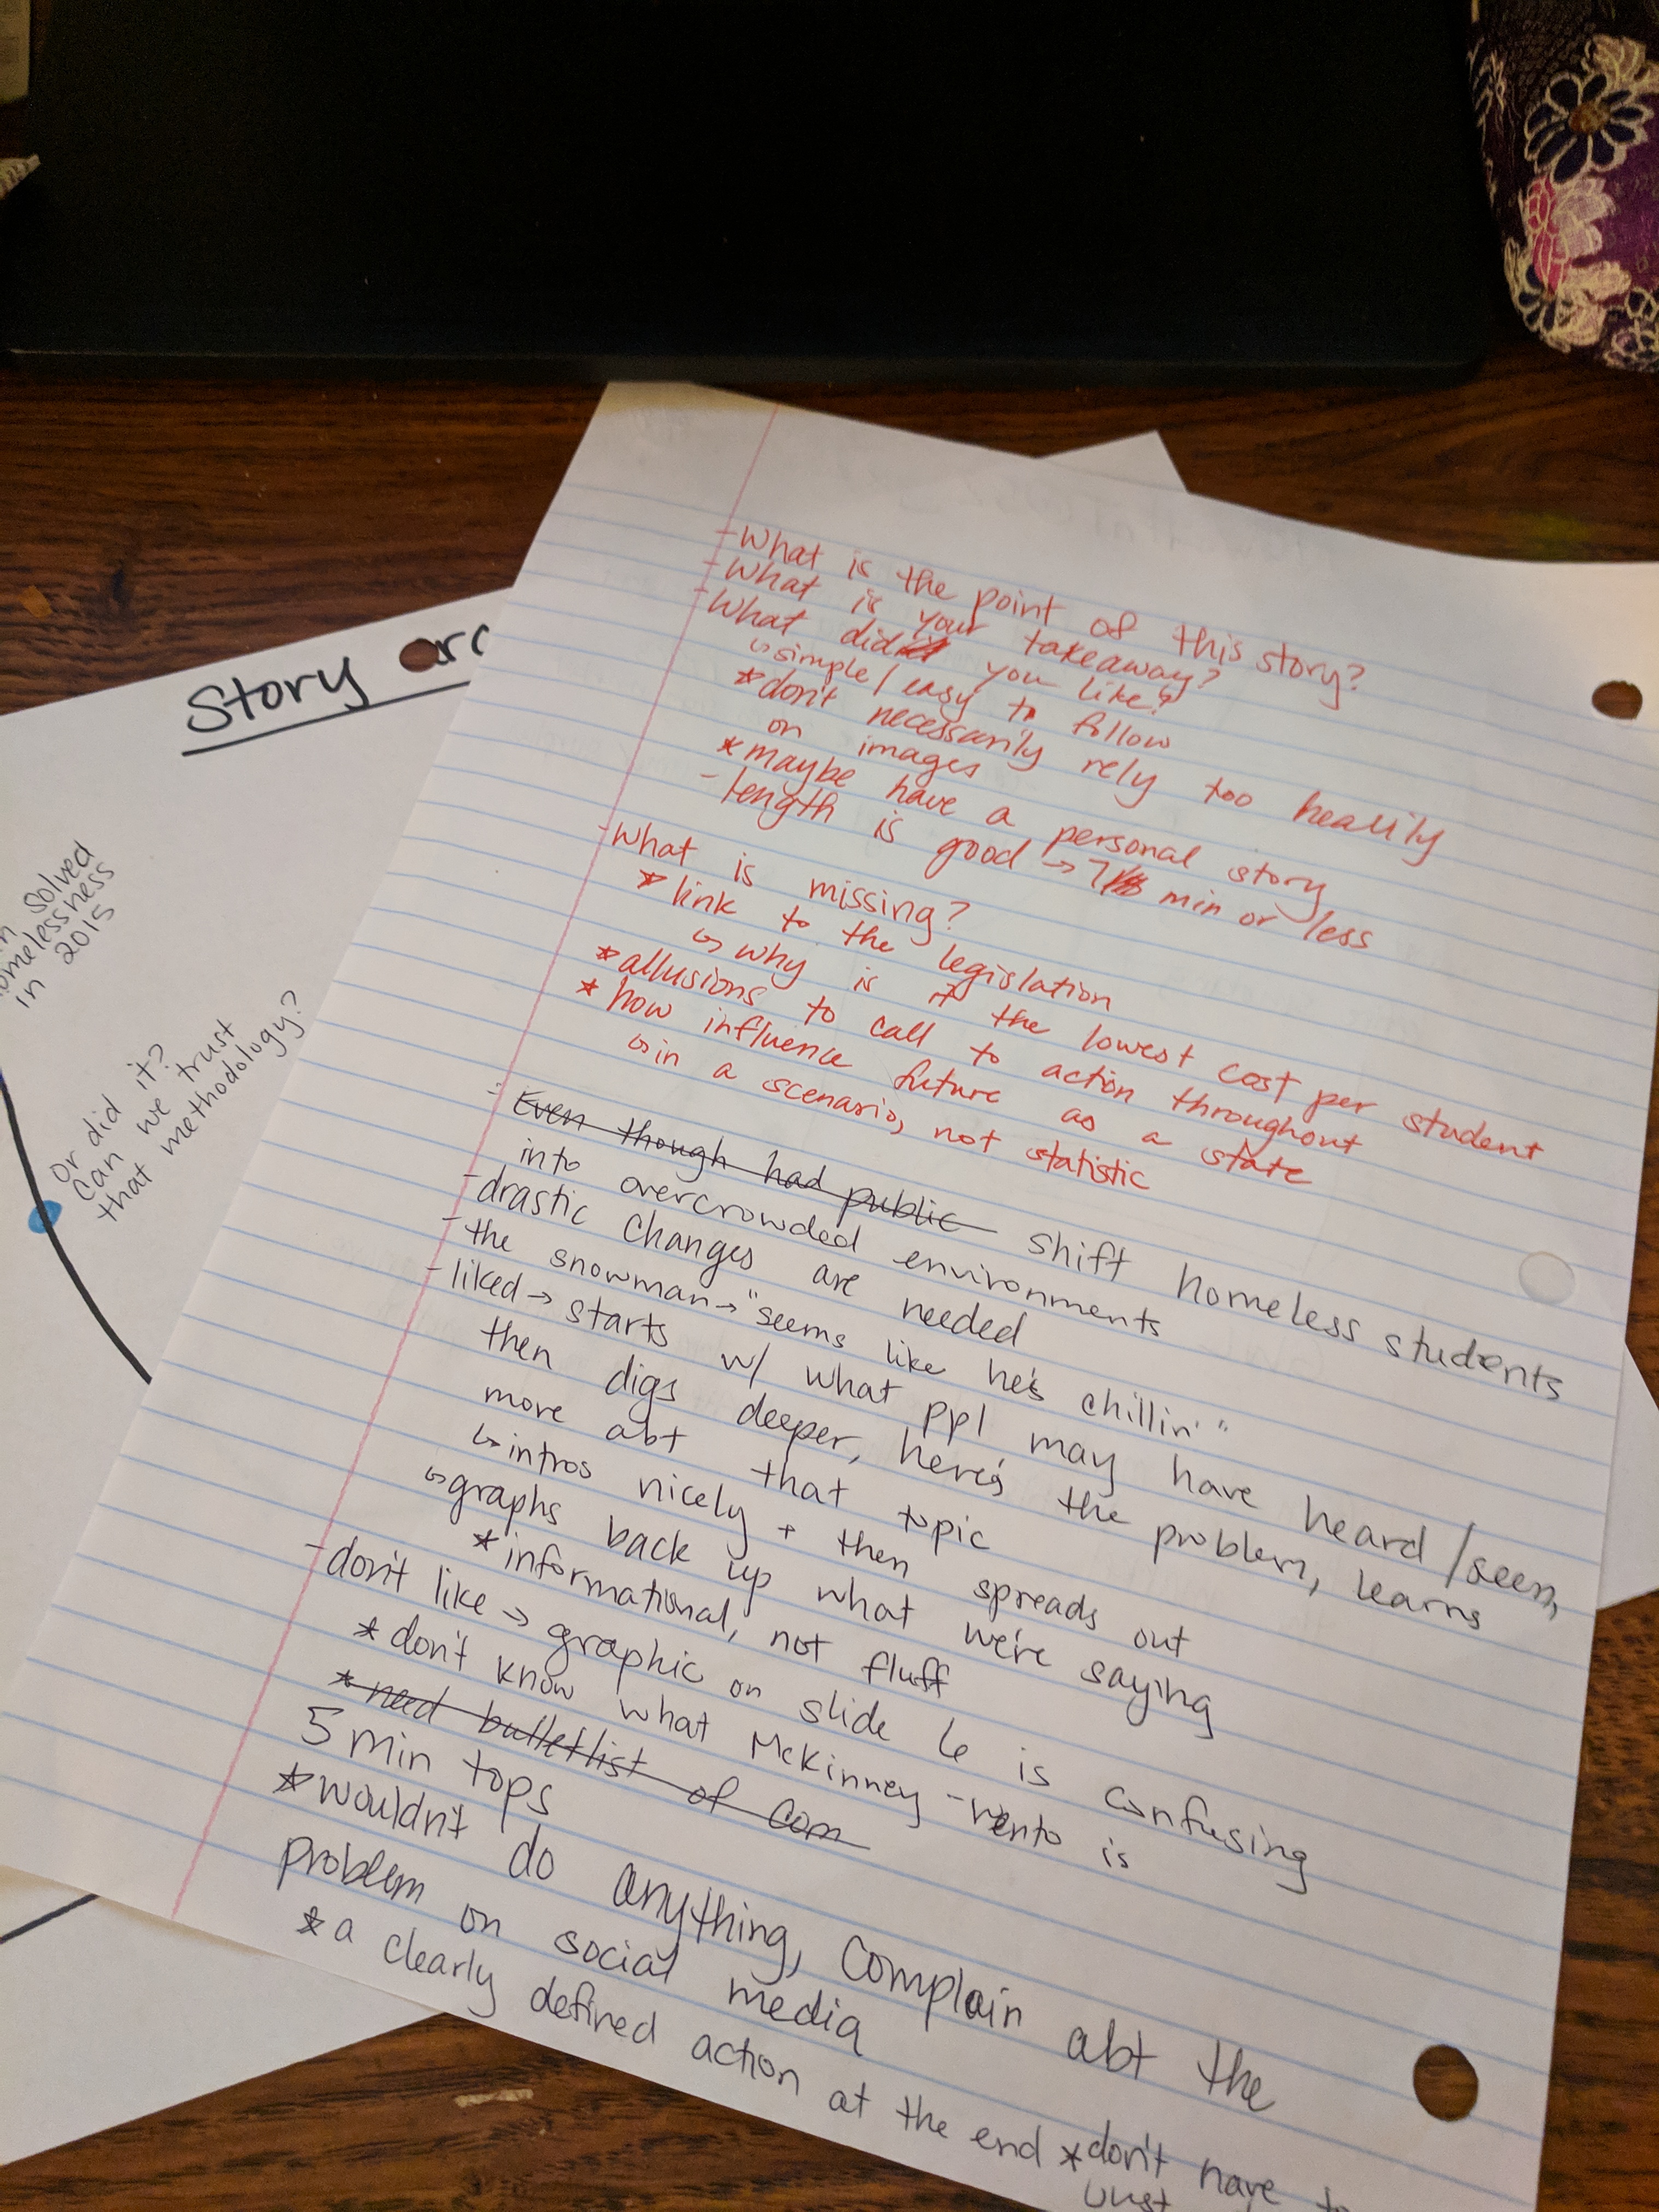 Story arc
solved
homelessness
in 2015
or did it?
can we trust
that methodology?
-What is the point of this story?
-What is your takeaway?
-What did you like?
↳simple/easy to follow
*don't necessarily rely too heavily
on images
*maybe have a personal story
-length is good → 7 min or less
-What is missing?
*link to the legislation
↳ why is it the lowest cost per student
*allusions to call to action throughout
*how influence future as a state
↳in a scenario, not statistic
- Even though had public shift homeless students
into overcrowded environments
-drastic changes are needed
-the snowman→"seems like he's chillin'"
-liked → starts w/ what ppl may have heard/seen,
then digs deeper, here's the problem, learns
more abt that topic
↳intros nicely + then spreads out
↳graphs back up what we're saying
*informational, not fluff
-don't like → graphic on slide 6 is confusing
*don't know what McKinney-Vento is
*need bulletlist of com
5 min tops
*wouldn't do anything, complain abt the
problem on social media
*a clearly defined action at the end *don't have to